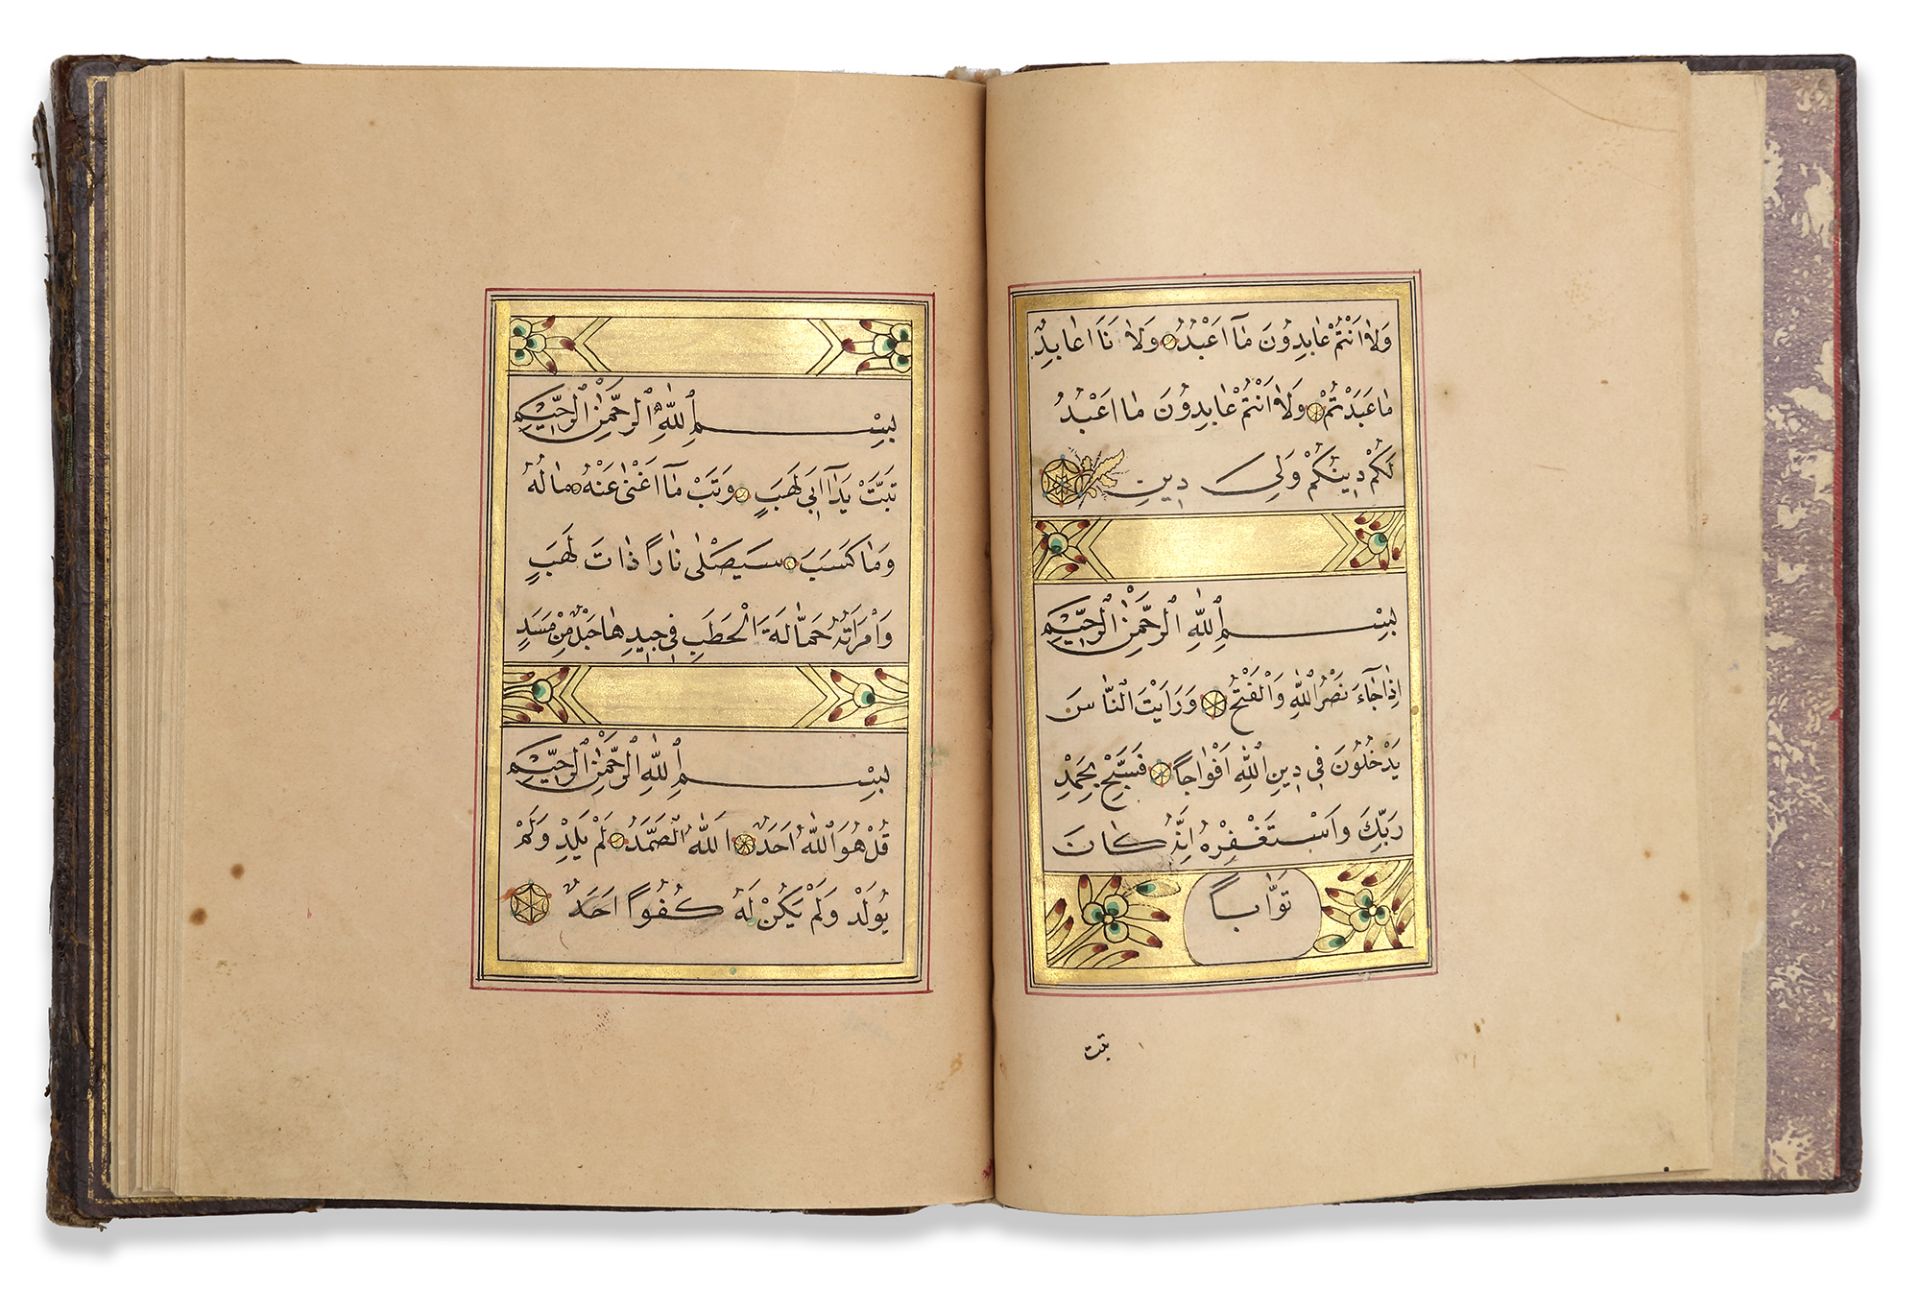 وَلَا اَنْتُمْ عَابِدُونَ مَآ اَعْبُدُ وَلَا نَا۬ اعَابِدٌ
مَا عَبَدْتُمْ وَلَا اَنْتُمْ عَابِدُونَ مَا اَعْبُدُ
لَكُمْ دِينُكُمْ وَلِىَ دِينِ
بِسْمِ اللّٰهِ الرَّحْمٰنِ الرَّحِيمِ
اِذَا جَآءَ نَصْرُ اللّٰهِ وَالْفَتْحُ وَرَاَيْتَ النَّاسَ
يَدْخُلُونَ فِى دِينِ اللّٰهِ اَفْوَاجًا فَسَبِّحْ بِحَمْدِ
رَبِّكَ وَاسْتَغْفِرْهُ اِنَّهُ كَانَ
تَوَّابًا
تبت
بِسْمِ اللّٰهِ الرَّحْمٰنِ الرَّحِيمِ
تَبَّتْ يَدَآ اَبِى لَهَبٍ وَتَبَّ مَآ اَغْنٰى عَنْهُ مَالُهُ
وَمَا كَسَبَ سَيَصْلٰى نَارًا ذَاتَ لَهَبٍ
وَامْرَاَتُهُ حَمَّالَةَ الْحَطَبِ فِى جِيدِهَا حَبْلٌ مِنْ مَسَدٍ
بِسْمِ اللّٰهِ الرَّحْمٰنِ الرَّحِيمِ
قُلْ هُوَ اللّٰهُ اَحَدٌ اَللّٰهُ الصَّمَدُ لَمْ يَلِدْ وَلَمْ
يُولَدْ وَلَمْ يَكُنْ لَهُ كُفُوًا اَحَدٌ